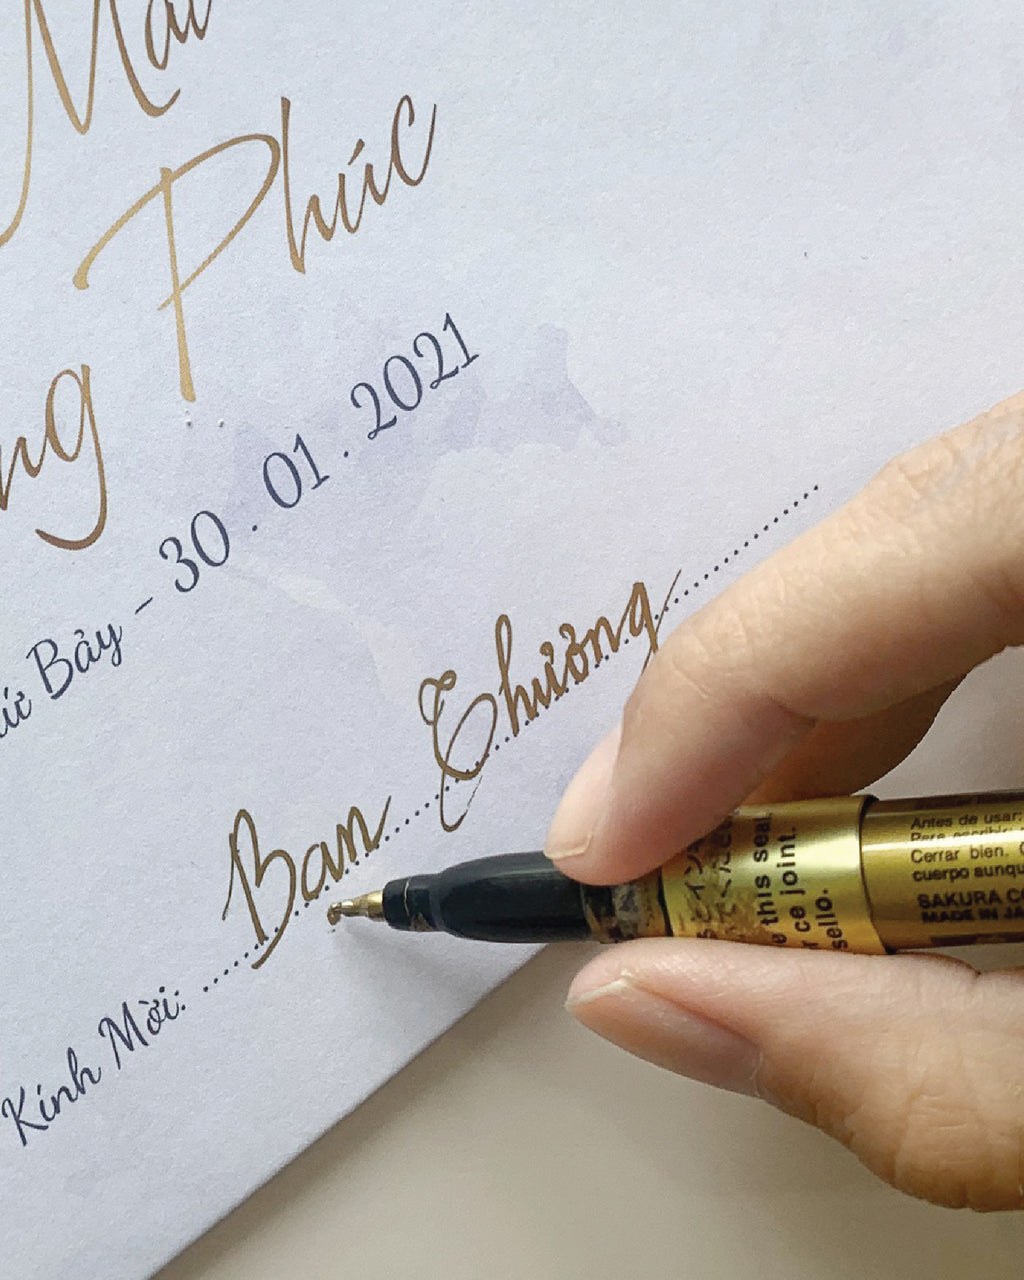 Mai
Phúc
ng
Thứ Bảy - 30 . 01 . 2021
Kính Mời: Ban Thưởng
this seal
ce joint.
sello.
Antes de usar:
Cerrar bien.
cuerpo aunqu
SAKURA CO
MADE IN JA